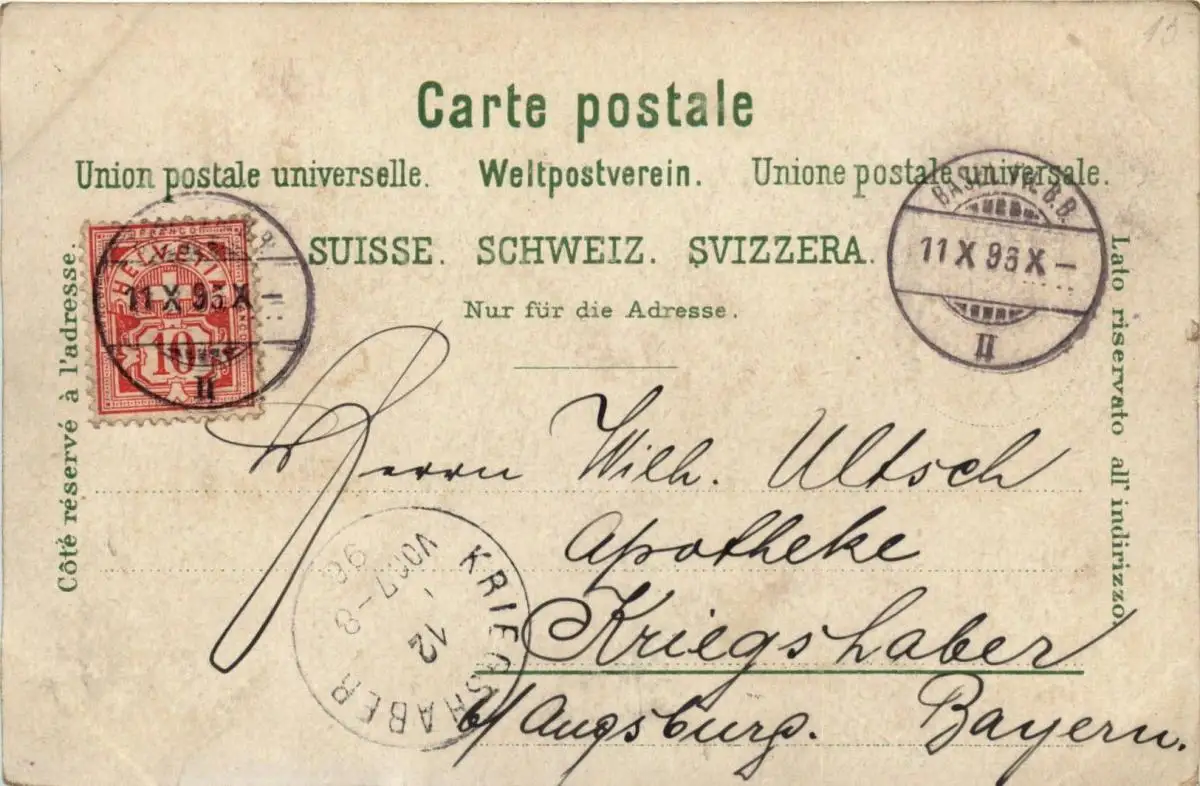 15
Carte postale
Union postale universelle. Weltpostverein. Unione postale universale.
SUISSE. SCHWEIZ. SVIZZERA.
Nur für die Adresse.
Côté réservé à l'adresse.
Lato riservato all' indirizzo.
FRANCO
HELVETIA
10
11 X 96 X –
II
BASEL B.B.
11 X 96 X –
II
Herrn Wilh. Ultsch
Apotheke
Kriegshaber
b/Augsburg. Bayern.
KRIEGSHABER
12
VOR 7-8
96